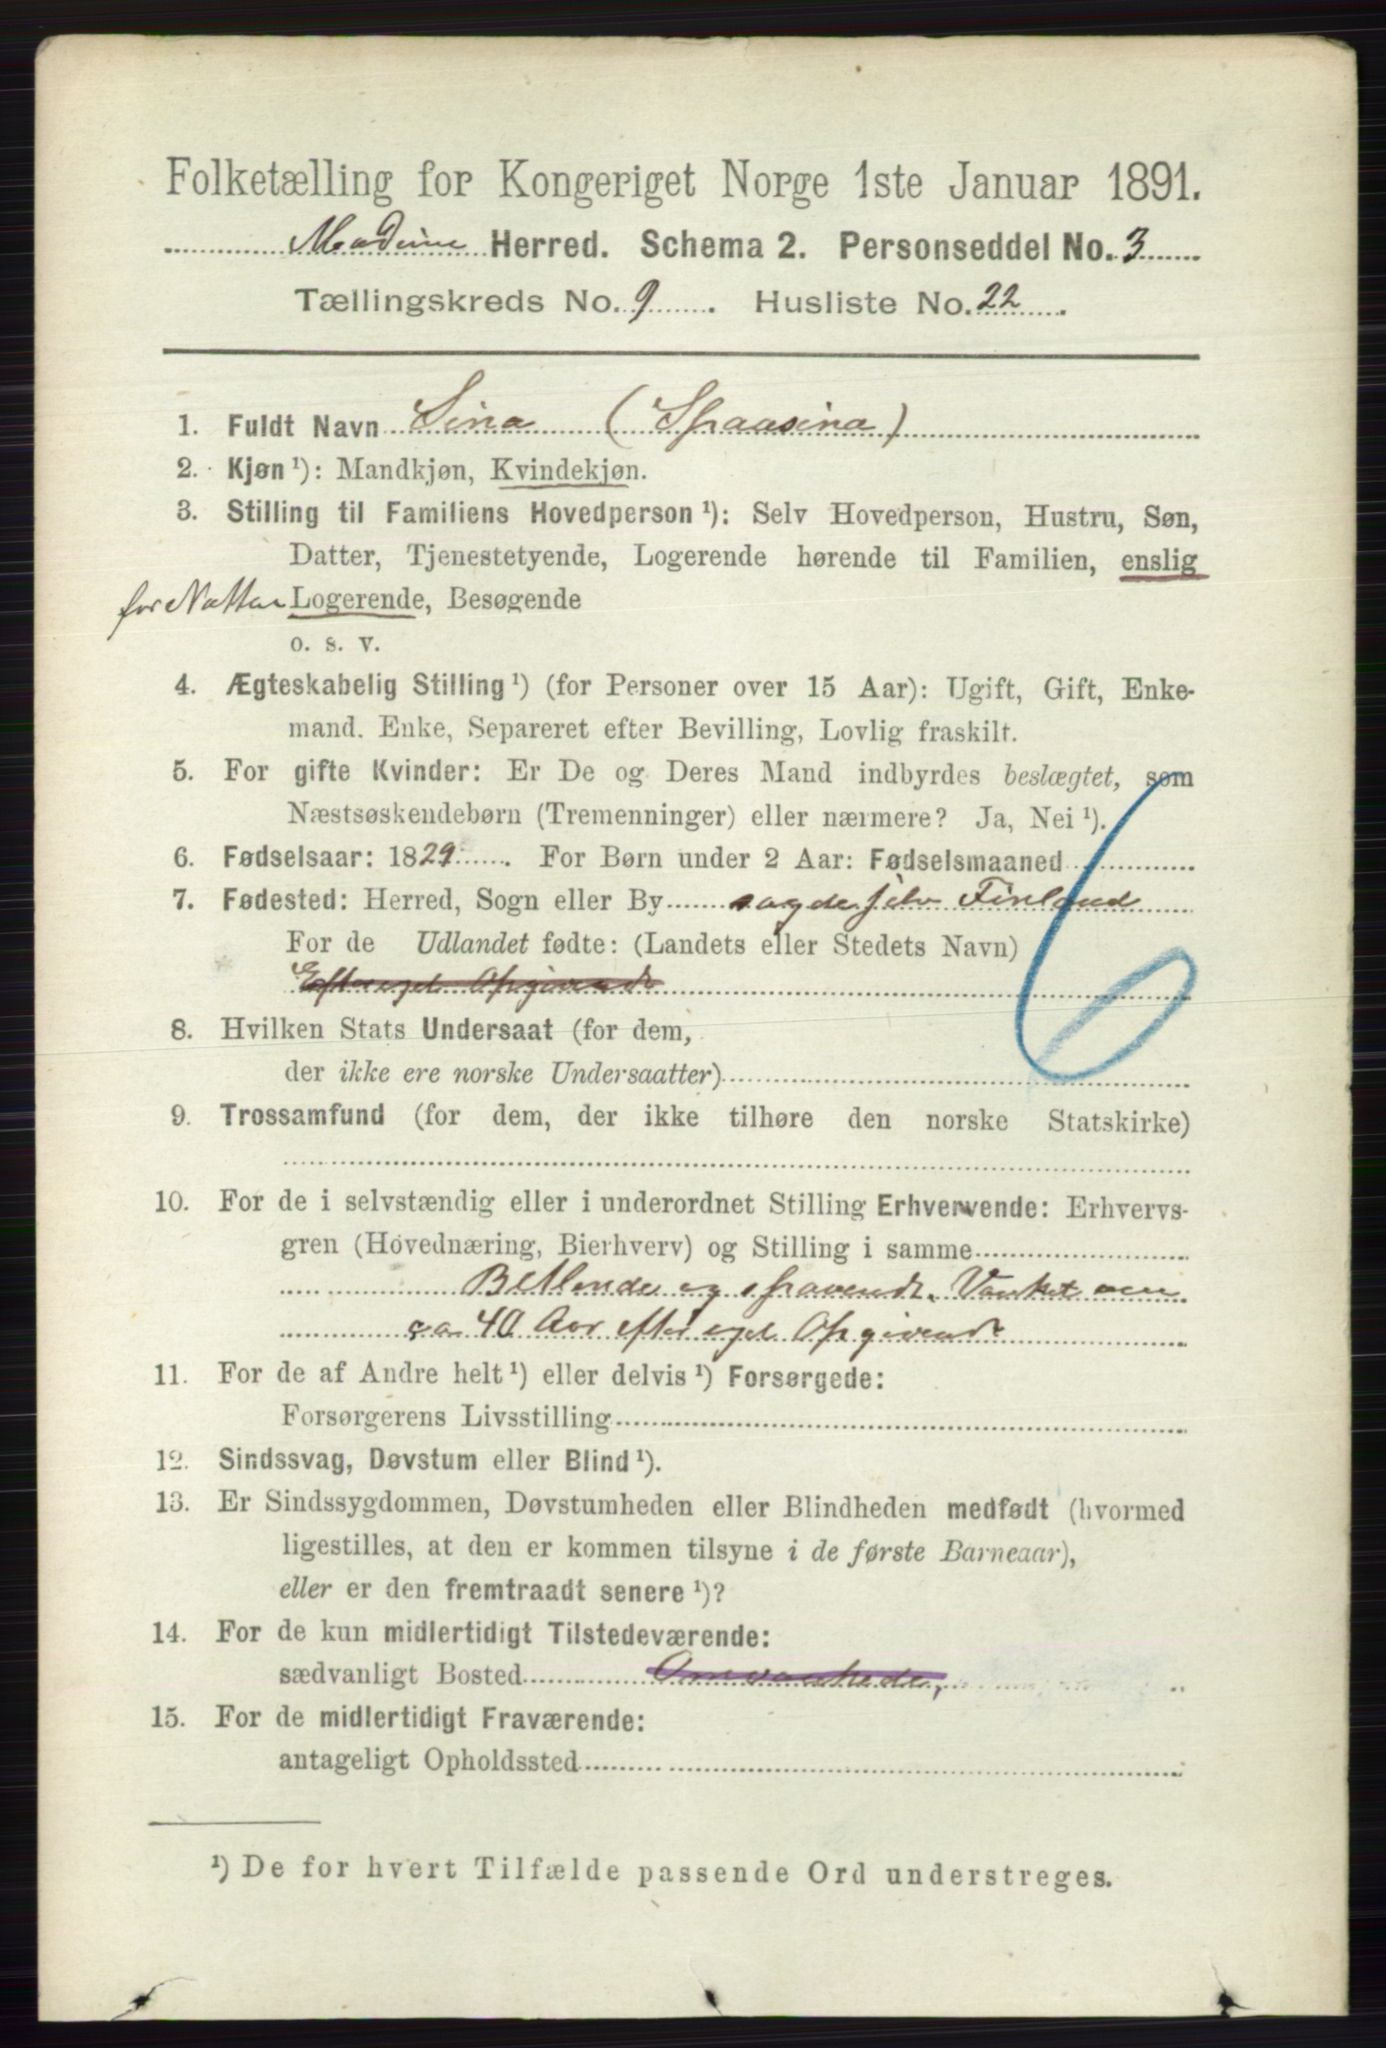 Folketælling for Kongeriget Norge 1ste Januar 1891.
Modum Herred. Schema 2. Personseddel No. 3
Tællingskreds No. 9. Husliste No. 22.
1. Fuldt Navn Sina (Spaasina)
2. Kjøn ¹): Mandkjøn, Kvindekjøn.
3. Stilling til Familiens Hovedperson ¹): Selv Hovedperson, Hustru, Søn,
Datter, Tjenestetyende, Logerende hørende til Familien, enslig
for Natten Logerende, Besøgende
o. s. v.
4. Ægteskabelig Stilling ¹) (for Personer over 15 Aar): Ugift, Gift, Enke-
mand. Enke, Separeret efter Bevilling, Lovlig fraskilt.
5. For gifte Kvinder: Er De og Deres Mand indbyrdes beslægtet, som
Næstsøskendebørn (Tremenninger) eller nærmere? Ja, Nei ¹).
6. Fødselsaar: 1829. For Børn under 2 Aar: Fødselsmaaned
7. Fødested: Herred, Sogn eller By sagde selv Finland
For de Udlandet fødte: (Landets eller Stedets Navn)
Efter eget Opgivende
8. Hvilken Stats Undersaat (for dem,
der ikke ere norske Undersaatter)
9. Trossamfund (for dem, der ikke tilhøre den norske Statskirke)
10. For de i selvstændig eller i underordnet Stilling Erhvervende: Erhvervs-
gren (Hovednæring, Bierhverv) og Stilling i samme
Betlende og spaaende. Vanket om
ca 40 Aar efter eget Opgivende
11. For de af Andre helt ¹) eller delvis ¹) Forsørgede:
Forsørgerens Livsstilling
12. Sindssvag, Døvstum eller Blind ¹).
13. Er Sindssygdommen, Døvstumheden eller Blindheden medfødt (hvormed
ligestilles, at den er kommen tilsyne i de første Barneaar),
eller er den fremtraadt senere ¹)?
14. For de kun midlertidigt Tilstedeværende:
sædvanligt Bosted Omvankede,
15. For de midlertidigt Fraværende:
antageligt Opholdssted
¹) De for hvert Tilfælde passende Ord understreges.